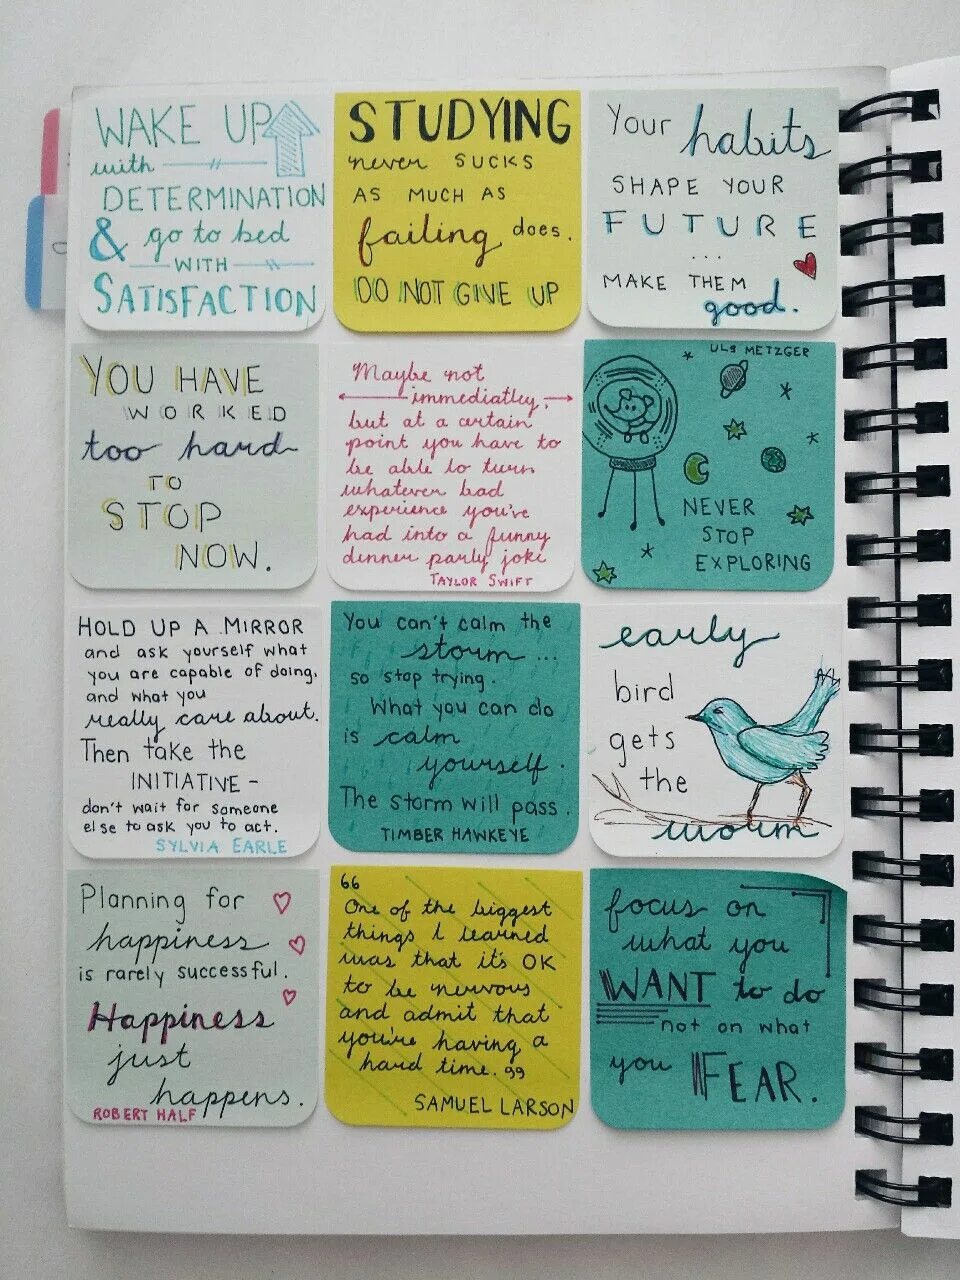 WAKE UP
with
DETERMINATION
& go to bed
WITH
SATISFACTION
STUDYING
never SUCKS
AS MUCH AS
failing does.
DO NOT GIVE UP
Your habits
SHAPE YOUR
FUTURE
...
MAKE THEM
good.
YOU HAVE
WORKED
too hard
TO
STOP
NOW.
Maybe not
immediatley,
but at a certain
point you have to
be able to turn
whatever bad
experience you've
had into a funny
dinner party joke
TAYLOR SWIFT
ULS METZGER
NEVER
STOP
EXPLORING
HOLD UP A MIRROR
and ask yourself what
you are capable of doing,
and what you
really care about.
Then take the
INITIATIVE -
don't wait for someone
else to ask you to act.
SYLVIA EARLE
You can't calm the
storm ...
so stop trying.
What you can do
is calm
yourself.
The storm will pass.
TIMBER HAWKEYE
early
bird
gets
the
worm
Planning for
happiness
is rarely successful.
Happiness
just
happens.
ROBERT HALF
“
One of the biggest
things I learned
was that it's OK
to be nervous
and admit that
you're having a
hard time.”
SAMUEL LARSON
focus on
what you
WANT to do
not on what
you FEAR.